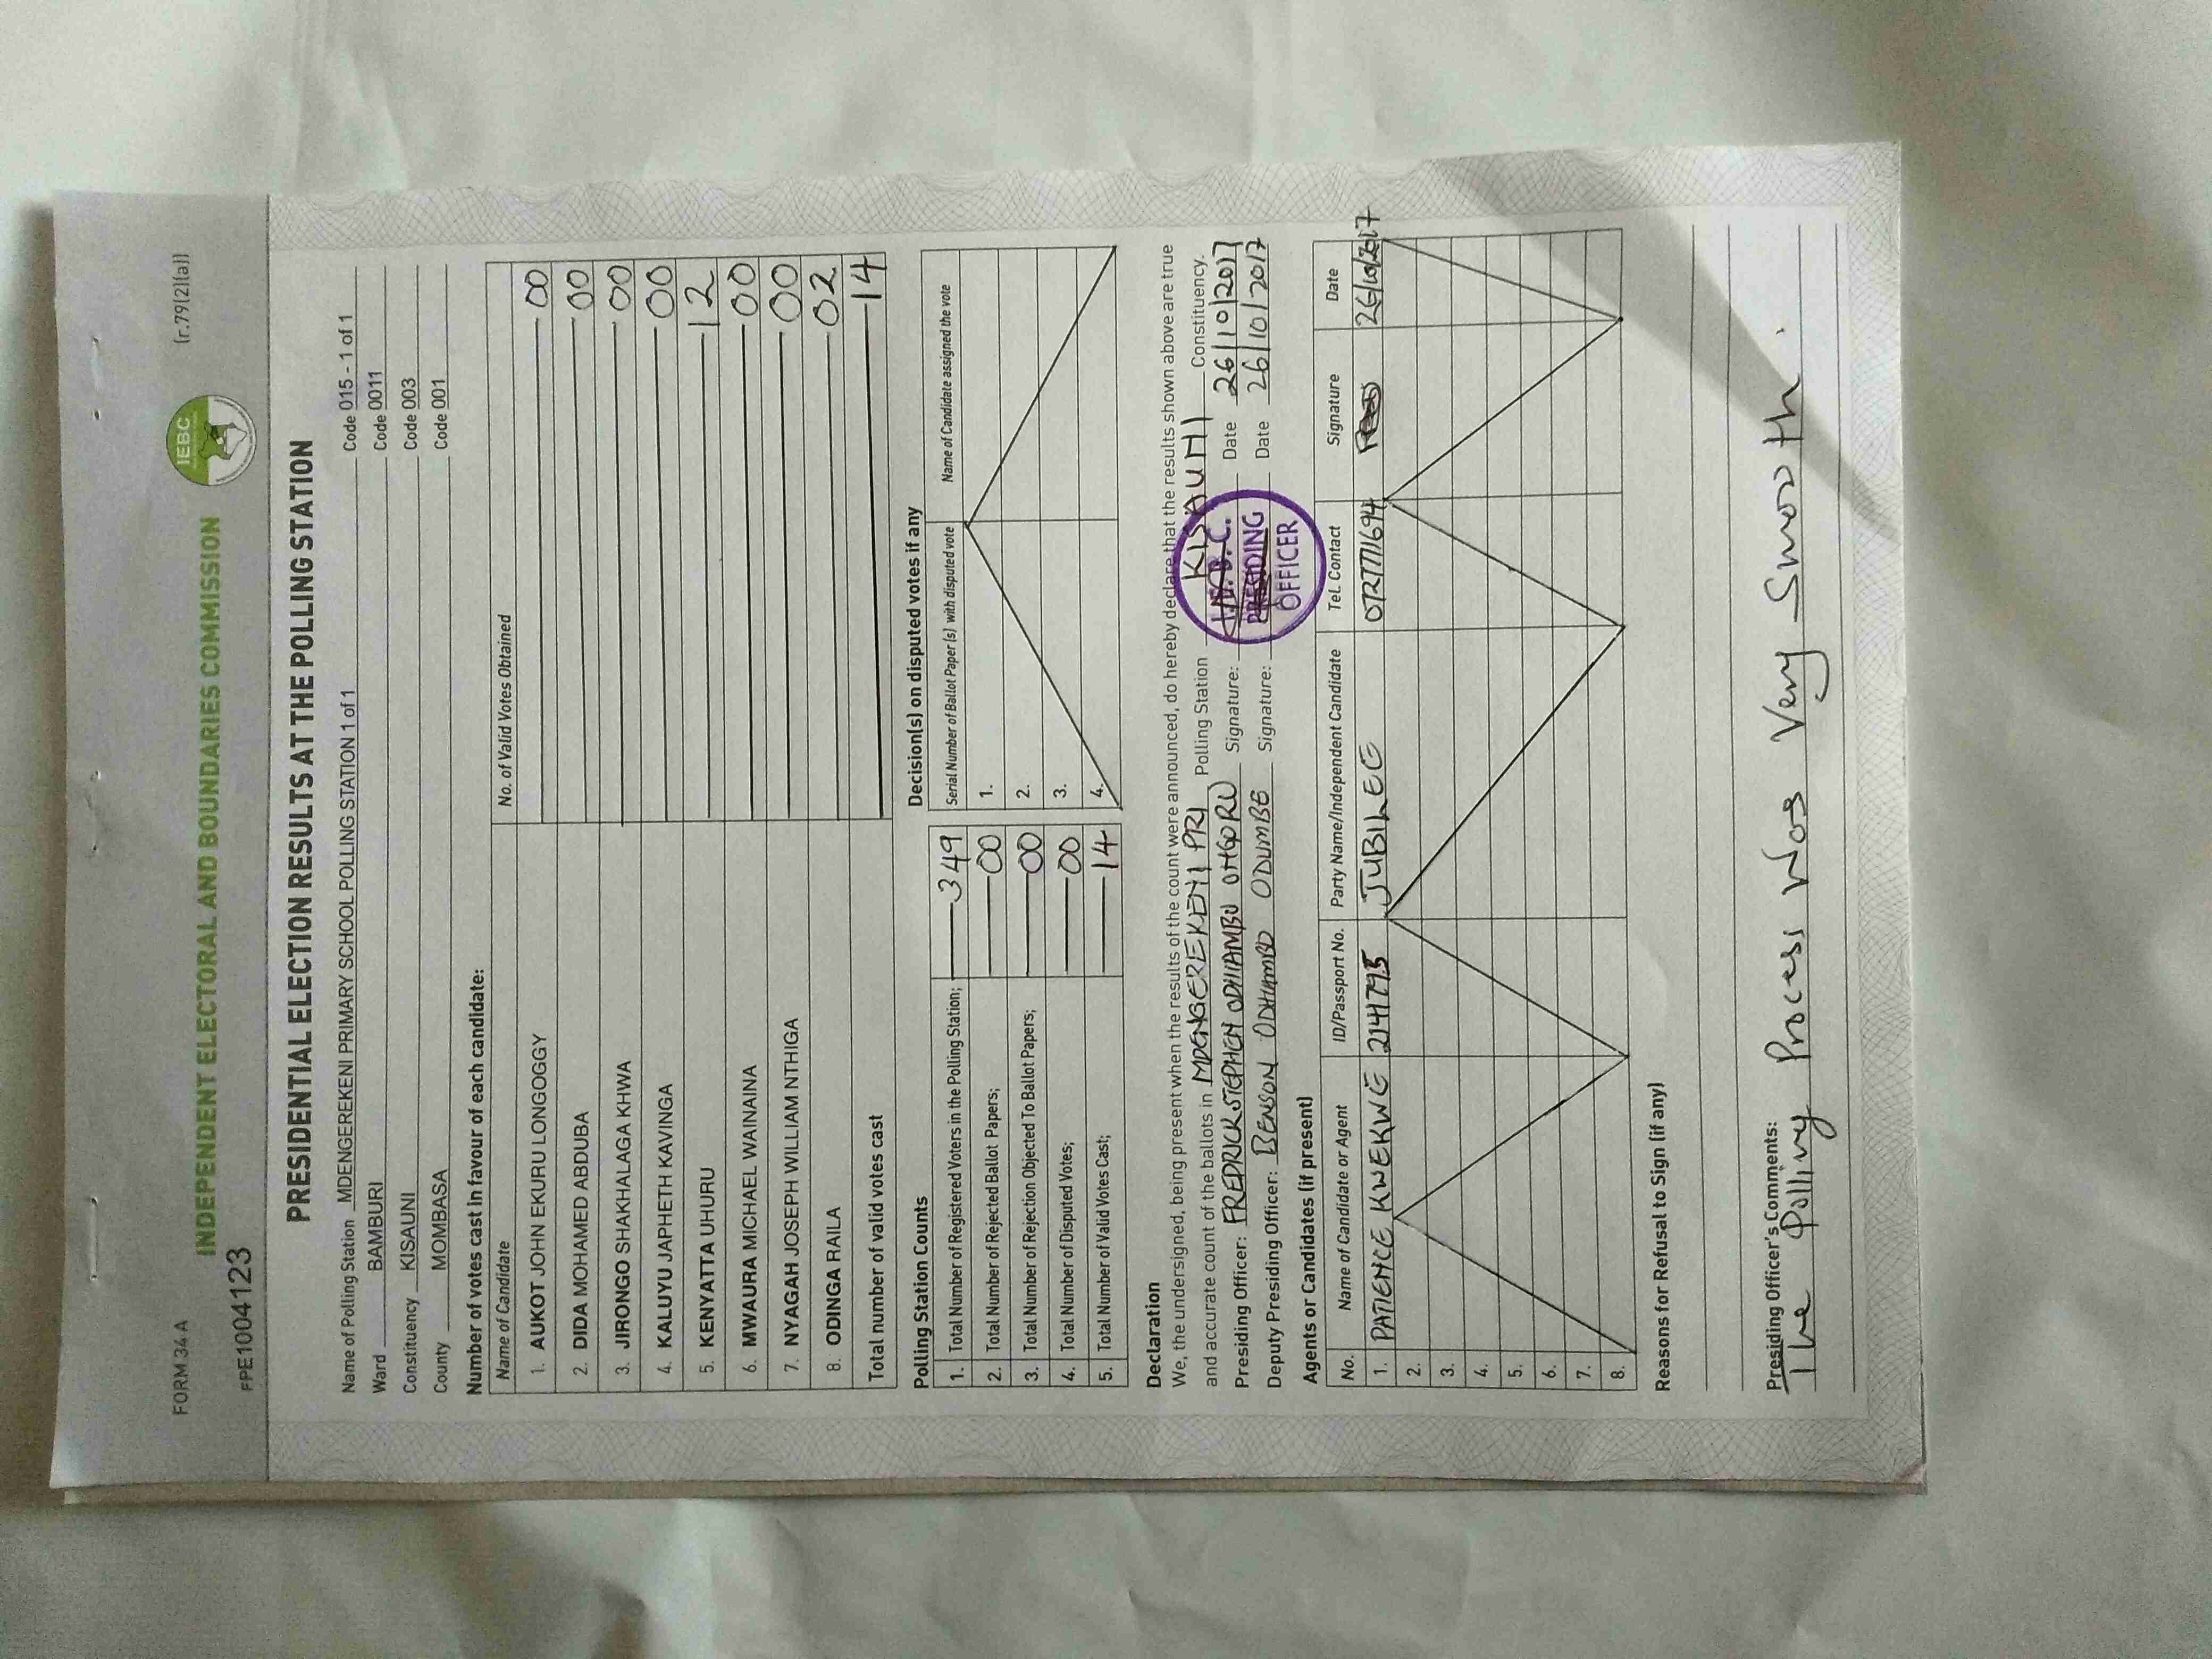 FORM 34 A
(r.79(2)(a))
IEBC
INDEPENDENT ELECTORAL AND BOUNDARIES COMMISSION
FPE1004123
PRESIDENTIAL ELECTION RESULTS AT THE POLLING STATION
Name of Polling Station MDENGEREKENI PRIMARY SCHOOL POLLING STATION 1 of 1 Code 015 - 1 of 1
Ward BAMBURI Code 0011
Constituency KISAUNI Code 003
County MOMBASA Code 001
Number of votes cast in favour of each candidate:
Name of Candidate No. of Valid Votes Obtained
1. AUKOT JOHN EKURU LONGOGGY 00
2. DIDA MOHAMED ABDUBA 00
3. JIRONGO SHAKHALAGA KHWA 00
4. KALUYU JAPHETH KAVINGA 00
5. KENYATTA UHURU 12
6. MWAURA MICHAEL WAINAINA 00
7. NYAGAH JOSEPH WILLIAM NTHIGA 00
8. ODINGA RAILA 02
Total number of valid votes cast 14
Polling Station Counts
1. Total Number of Registered Voters in the Polling Station; 349
2. Total Number of Rejected Ballot Papers; 00
3. Total Number of Rejection Objected To Ballot Papers; 00
4. Total Number of Disputed Votes; 00
5. Total Number of Valid Votes Cast; 14
Decision(s) on disputed votes if any
Serial Number of Ballot Paper (s) with disputed vote Name of Candidate assigned the vote
1.
2.
3.
4.
Declaration
We, the undersigned, being present when the results of the count were announced, do hereby declare that the results shown above are true
and accurate count of the ballots in MDENGEREKENI PRI Polling Station KISAUNI Constituency.
Presiding Officer: FREDRICK STEPHEN ODHIAMBO Signature: Date 26/10/2017
Deputy Presiding Officer: BENSON ODHIAMBO ODUMBE Signature: Date 26/10/2017
I.E.B.C.
PRESIDING
OFFICER
Agents or Candidates (if present)
No. Name of Candidate or Agent ID/Passport No. Party Name/Independent Candidate Tel. Contact Signature Date
1. PATIENCE KWEKWE JUBILEE 26/10/2017
2.
3.
4.
5.
6.
7.
8.
Reasons for Refusal to Sign (if any)
Presiding Officer's Comments:
The Polling Process Was Very Smooth.